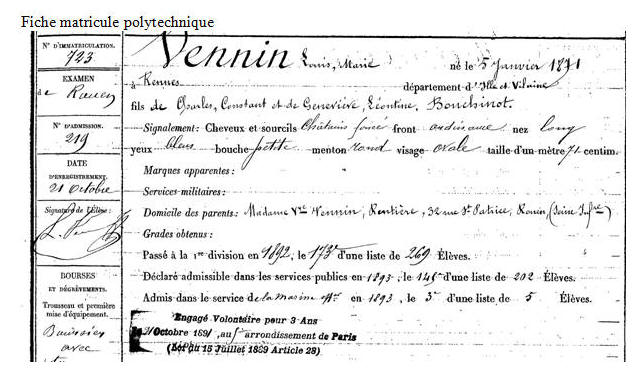 Fiche matricule polytechnique
N° D'IMMATRICULATION.
723
EXAMEN
de Rouen
N° D'ADMISSION.
219
DATE
D'ENREGISTREMENT.
21 octobre
Signature de l'Élève:
BOURSES
ET DÉGRÈVEMENTS.
Trousseau et première
mise d'équipement.
Boursier
avec
Vennin Louis, Marie né le 5 Janvier 1871
à Rennes département d'Ille et Vilaine
fils de Charles, Constant et de Geneviève Léontine, Bouchinot.
Signalement: Cheveux et sourcils Châtains foncé front ordinaire nez long
yeux bleus bouche petite menton rond visage ovale taille d'un mètre 71 centim.
Marques apparentes:
Services militaires:
Domicile des parents: Madame Vve Vennin, Rentière, 32 rue St Patrice, Rouen, (Seine Infre)
Grades obtenus:
Passé à la 1re division en 1892, le 173e d'une liste de 269 Élèves.
Déclaré admissible dans les services publics en 1893, le 145e d'une liste de 202 Élèves.
Admis dans le service de la marine en 1893, le 3e d'une liste de 5 Élèves.
Engagé Volontaire pour 3 Ans
Octobre 1891, au arrondissement de Paris
(Loi du 15 Juillet 1889 Article 28)